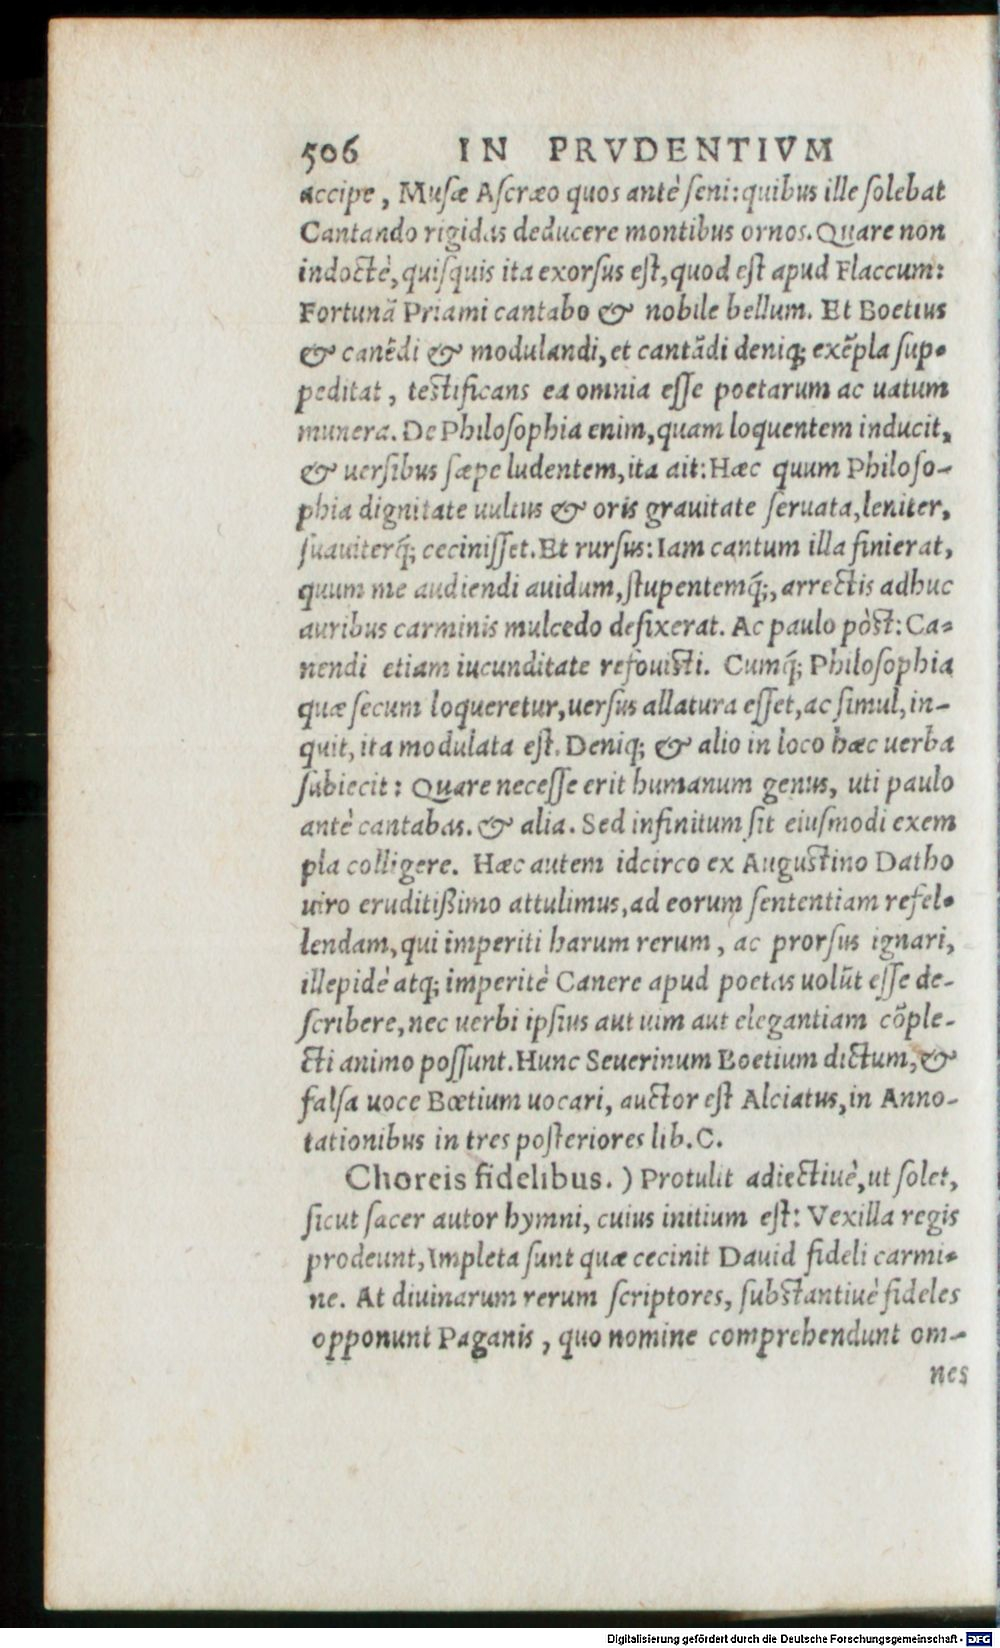 506 IN PRVDENTIVM
accipe, Musæ Ascræo quos antè seni: quibus ille solebat
Cantando rigidas deducere montibus ornos. Quare non
indoctè, quisquis ita exorsus est, quod est apud Flaccum:
Fortunā Priami cantabo & nobile bellum. Et Boetius
& canēdi & modulandi, et cantādi deniq; exēpla sup-
peditat, testificans ea omnia esse poetarum ac uatum
munera. De Philosophia enim, quam loquentem inducit,
& uersibus sæpe ludentem, ita ait: Hæc quum Philoso-
phia dignitate uultus & oris grauitate seruata, leniter,
suauiterq́; cecinisset. Et rursus: Iam cantum illa finierat,
quum me audiendi auidum, stupentemq́;, arrectis adhuc
auribus carminis mulcedo defixerat. Ac paulo pòst: Ca-
nendi etiam iucunditate refouisti. Cumq́; Philosophia
quæ secum loqueretur, uersus allatura esset, ac simul, in-
quit, ita modulata est. Deniq; & alio in loco hæc uerba
subiecit: Quare necesse erit humanum genus, uti paulo
antè cantabas. & alia. Sed infinitum sit eiusmodi exem
pla colligere. Hæc autem idcirco ex Augustino Datho
uiro eruditißimo attulimus, ad eorum sententiam refel-
lendam, qui imperiti harum rerum, ac prorsus ignari,
illepidè atq; imperitè Canere apud poetas uolūt esse de-
scribere, nec uerbi ipsius aut uim aut elegantiam cōple-
cti animo possunt. Hunc Seuerinum Boetium dictum, &
falsa uoce Bœtium uocari, auctor est Alciatus, in Anno-
tationibus in tres posteriores lib. C.
Choreis fidelibus. ) Protulit adiectiuè, ut solet,
sicut sacer autor hymni, cuius initium est: Vexilla regis
prodeunt, Impleta sunt quæ cecinit Dauid fideli carmi-
ne. At diuinarum rerum scriptores, substantiuè fideles
opponunt Paganis, quo nomine comprehendunt om-
nes
Digitalisierung gefördert durch die Deutsche Forschungsgemeinschaft - DFG